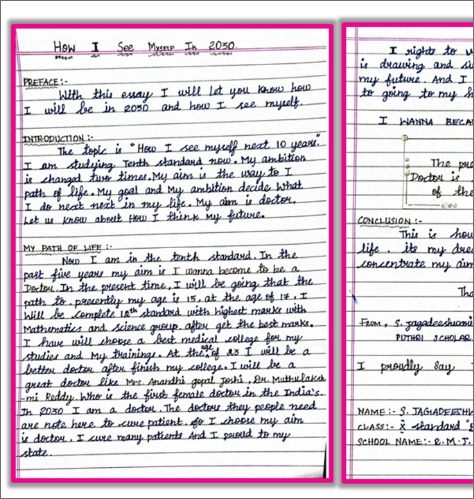 How I See Myself In 2030.
PREFACE:-
With this essay I will let you know how
I will be in 2030 and how I see myself.
INTRODUCTION:-
The topic is "How I see myself next 10 years"
I am studying Tenth standard now. My ambition
is changed two times. My aim is the way to I
path of life. My goal and My ambition decide what
I do next next in my life. My aim is doctor.
Let us know about How I think my future.
MY PATH OF LIFE:-
Now I am in the tenth standard. In the
past five years my aim is I wanna become to be a
Doctor. In the present time, I will be going that the
path to. presently my age is 15, at the age of 17. I
Will be complete 12th standard with highest marks with
Mathematics and science group. after get the best marks.
I have will choose a best medical college for my
studies and My trainings. At the age of 23 I will be a
better doctor after finish my college. I will be a
great doctor like Mrs. Anandhi gopal Joshi, Dr. Muthulaksh
-mi Reddy. Who is the first female doctor in the India's.
In 2030 I am a doctor. The doctors they people need
are note here to cure patient. so I choose my aim
is doctor. I cure many patients And I proud to my
state.
I right to
is drawing and
my future. And I
to going to my
I WANNA BECA
The
Doctor is
of the
CONCLUSION:-
This is
life. its my
concentrate my aim
FROM, S. jagadeeshwari
SCHOLAR
I proudly Say
NAME:- S. JAGADEESH
CLASS:- X standard
SCHOOL NAME:- R. M. J.